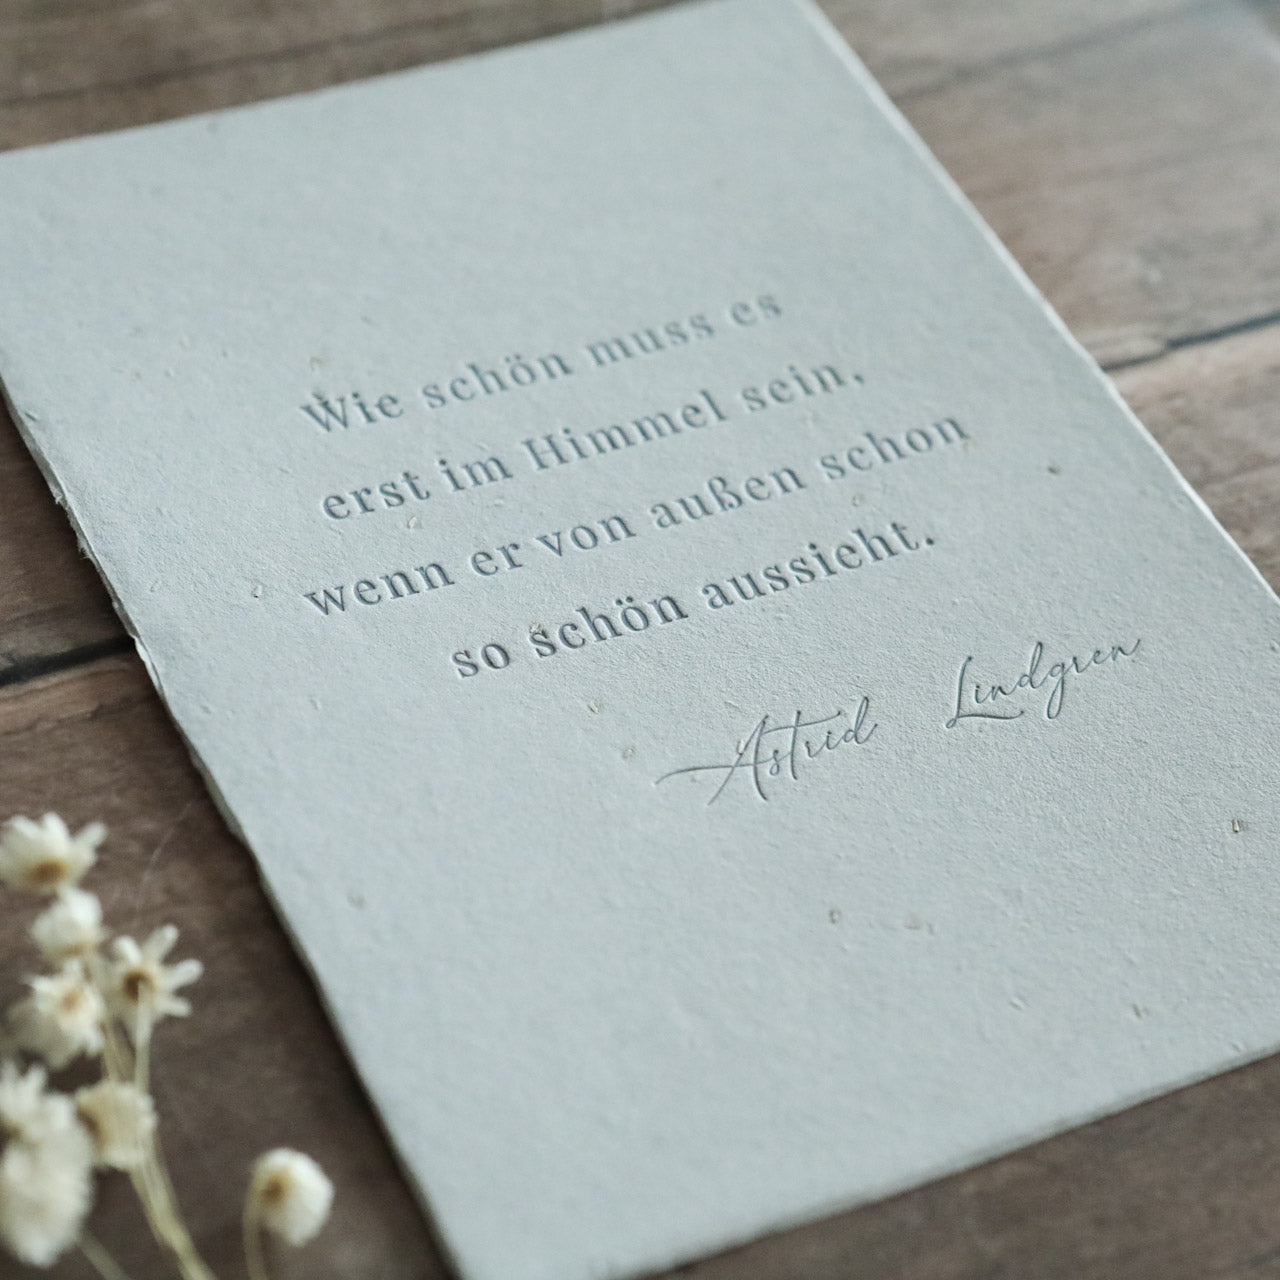 Wie schön muss es
erst im Himmel sein,
wenn er von außen schon
so schön aussieht.
Astrid Lindgren